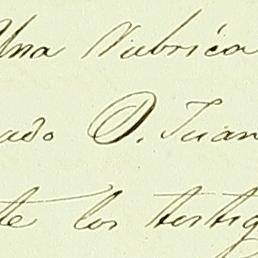 Una Rubrica
ado D. Juan
te los testig